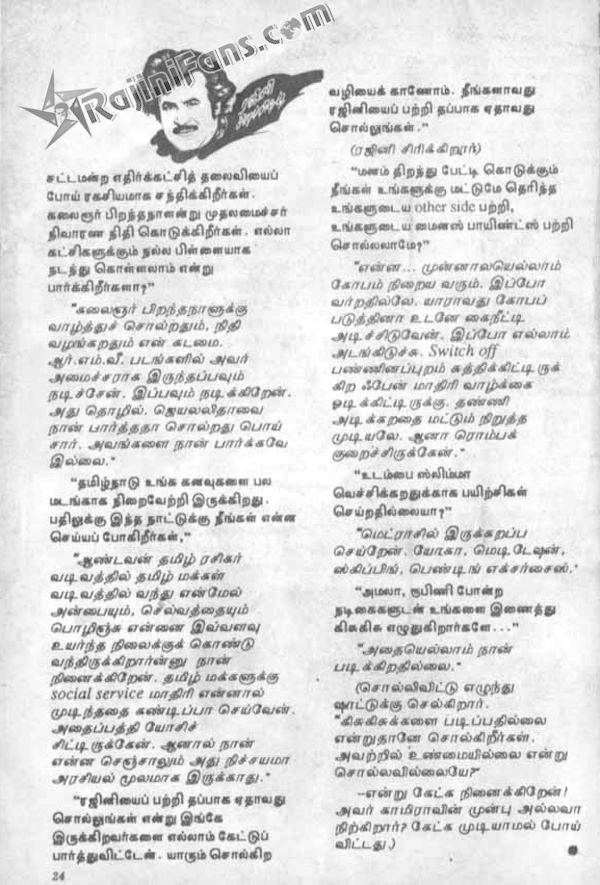 RajiniFans.com
ரஜினி
சட்டமன்ற எதிர்க்கட்சித் தலைவியைப்
போய் ரகசியமாக சந்திக்கிறீர்கள்.
கலைஞர் பிறந்தநாளன்று முதலமைச்சர்
நிவாரண நிதி கொடுக்கிறீர்கள். எல்லா
கட்சிகளுக்கும் நல்ல பிள்ளையாக
நடந்து கொள்ளலாம் என்று
பார்க்கிறீர்களா?"
"கலைஞர் பிறந்தநாளுக்கு
வாழ்த்துச் சொல்றதும், நிதி
வழங்கறதும் என் கடமை.
ஆர்.எம்.வீ. படங்களில் அவர்
அமைச்சராக இருந்தப்பவும்
நடிச்சேன். இப்பவும் நடிக்கிறேன்.
அது தொழில். ஜெயலலிதாவை
நான் பார்த்ததா சொல்றது பொய்
சார். அவங்களை நான் பார்க்கவே
இல்லை."
"தமிழ்நாடு உங்க கனவுகளை பல
மடங்காக நிறைவேற்றி இருக்கிறது.
பதிலுக்கு இந்த நாட்டுக்கு நீங்கள் என்ன
செய்யப் போகிறீர்கள்."
"ஆண்டவன் தமிழ் ரசிகர்
வடிவத்தில் தமிழ் மக்கள்
வடிவத்தில் வந்து என்மேல்
அன்பையும், செல்வத்தையும்
பொழிஞ்சு என்னை இவ்வளவு
உயர்ந்த நிலைக்குக் கொண்டு
வந்திருக்கிறார்ன்னு நான்
நினைக்கிறேன். தமிழ் மக்களுக்கு
social service மாதிரி என்னால்
முடிந்ததை கண்டிப்பா செய்வேன்.
அதைப்பத்தி யோசிச்
சிட்டிருக்கேன். ஆனால் நான்
என்ன செஞ்சாலும் அது நிச்சயமா
அரசியல் மூலமாக இருக்காது."
"ரஜினியைப் பற்றி தப்பாக ஏதாவது
சொல்லுங்கள் என்று இங்கே
இருக்கிறவர்களை எல்லாம் கேட்டுப்
பார்த்துவிட்டேன். யாரும் சொல்கிற
24
வழியைக் காணோம். நீங்களாவது
ரஜினியைப் பற்றி தப்பாக ஏதாவது
சொல்லுங்கள்."
(ரஜினி சிரிக்கிறார்)
"மனம் திறந்து பேட்டி கொடுக்கும்
நீங்கள் உங்களுக்கு மட்டுமே தெரிந்த
உங்களுடைய other side பற்றி,
உங்களுடைய மைனஸ் பாயிண்ட்ஸ் பற்றி
சொல்லலாமே?"
"என்ன... முன்னாலயெல்லாம்
கோபம் நிறைய வரும். இப்போ
வர்றதில்லே. யாராவது கோபப்
படுத்தினா உடனே கைநீட்டி
அடிச்சிடுவேன். இப்போ எல்லாம்
அடங்கிடுச்சு. Switch off
பண்ணினப்புறம் சுத்திக்கிட்டிருக்
கிற ஃபேன் மாதிரி வாழ்க்கை
ஓடிக்கிட்டிருக்கு. தண்ணி
அடிக்கறதை மட்டும் நிறுத்த
முடியலே. ஆனா ரொம்பக்
குறைச்சிருக்கேன்."
"உடம்பை ஸ்லிம்மா
வெச்சிக்கறதுக்காக பயிற்சிகள்
செய்றதில்லையா?"
"மெட்ராசில் இருக்கறப்ப
செய்றேன். யோகா, மெடிடேஷன்,
ஸ்கிப்பிங், பெண்டிங் எக்சர்சைஸ்."
"அமலா, ரூபிணி போன்ற
நடிகைகளுடன் உங்களை இணைத்து
கிசுகிசு எழுதுகிறார்களே..."
"அதையெல்லாம் நான்
படிக்கிறதில்லை."
(சொல்லிவிட்டு எழுந்து
ஷாட்டுக்கு செல்கிறார்.
"கிசுகிசுக்களை படிப்பதில்லை
என்றுதானே சொல்கிறீர்கள்.
அவற்றில் உண்மையில்லை என்று
சொல்லவில்லையே?"
--என்று கேட்க நினைக்கிறேன்!
அவர் காமிராவின் முன்பு அல்லவா
நிற்கிறார்? கேட்க முடியாமல் போய்
விட்டது.)